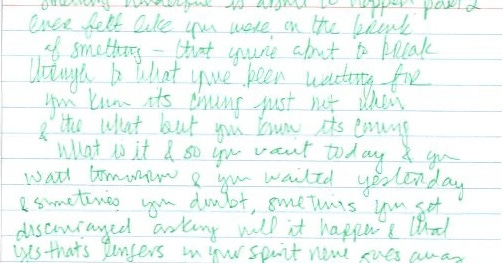 something wonderful is about to happen part 2
ever felt like you were on the break
of something - that you're about to break
through to what you've been waiting for
you know its coming just not when
& the what but you know its coming
What is it & so you wait today & you
wait tomorrow & you waited yesterday
& sometimes you doubt, sometimes you get
discouraged asking will it happen & that
yes thats lingers in your spirit never goes away